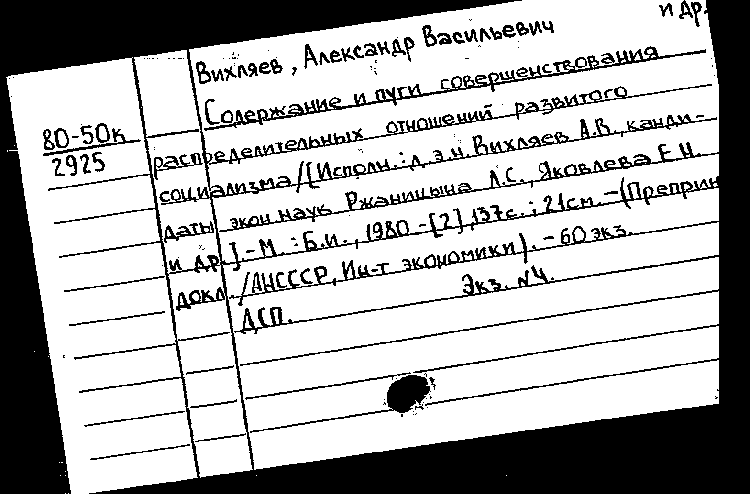 Вихляев, Александр Васильевич и др.
Содержание и пути совершенствования
80-50к
2925
распределительных отношений развитого
социализма/[Исполн.: д.э.н. Вихляев А.В., канди-
даты экон наук Ржаницына Л.С., Яковлева Е.Н.
и др.].-М.: Б.и., 1980.-[2], 137с.; 21см.-(Препринт
докл./АНСССР, Ин-т экономики).-60 экз.
ДСП. Экз. №4.